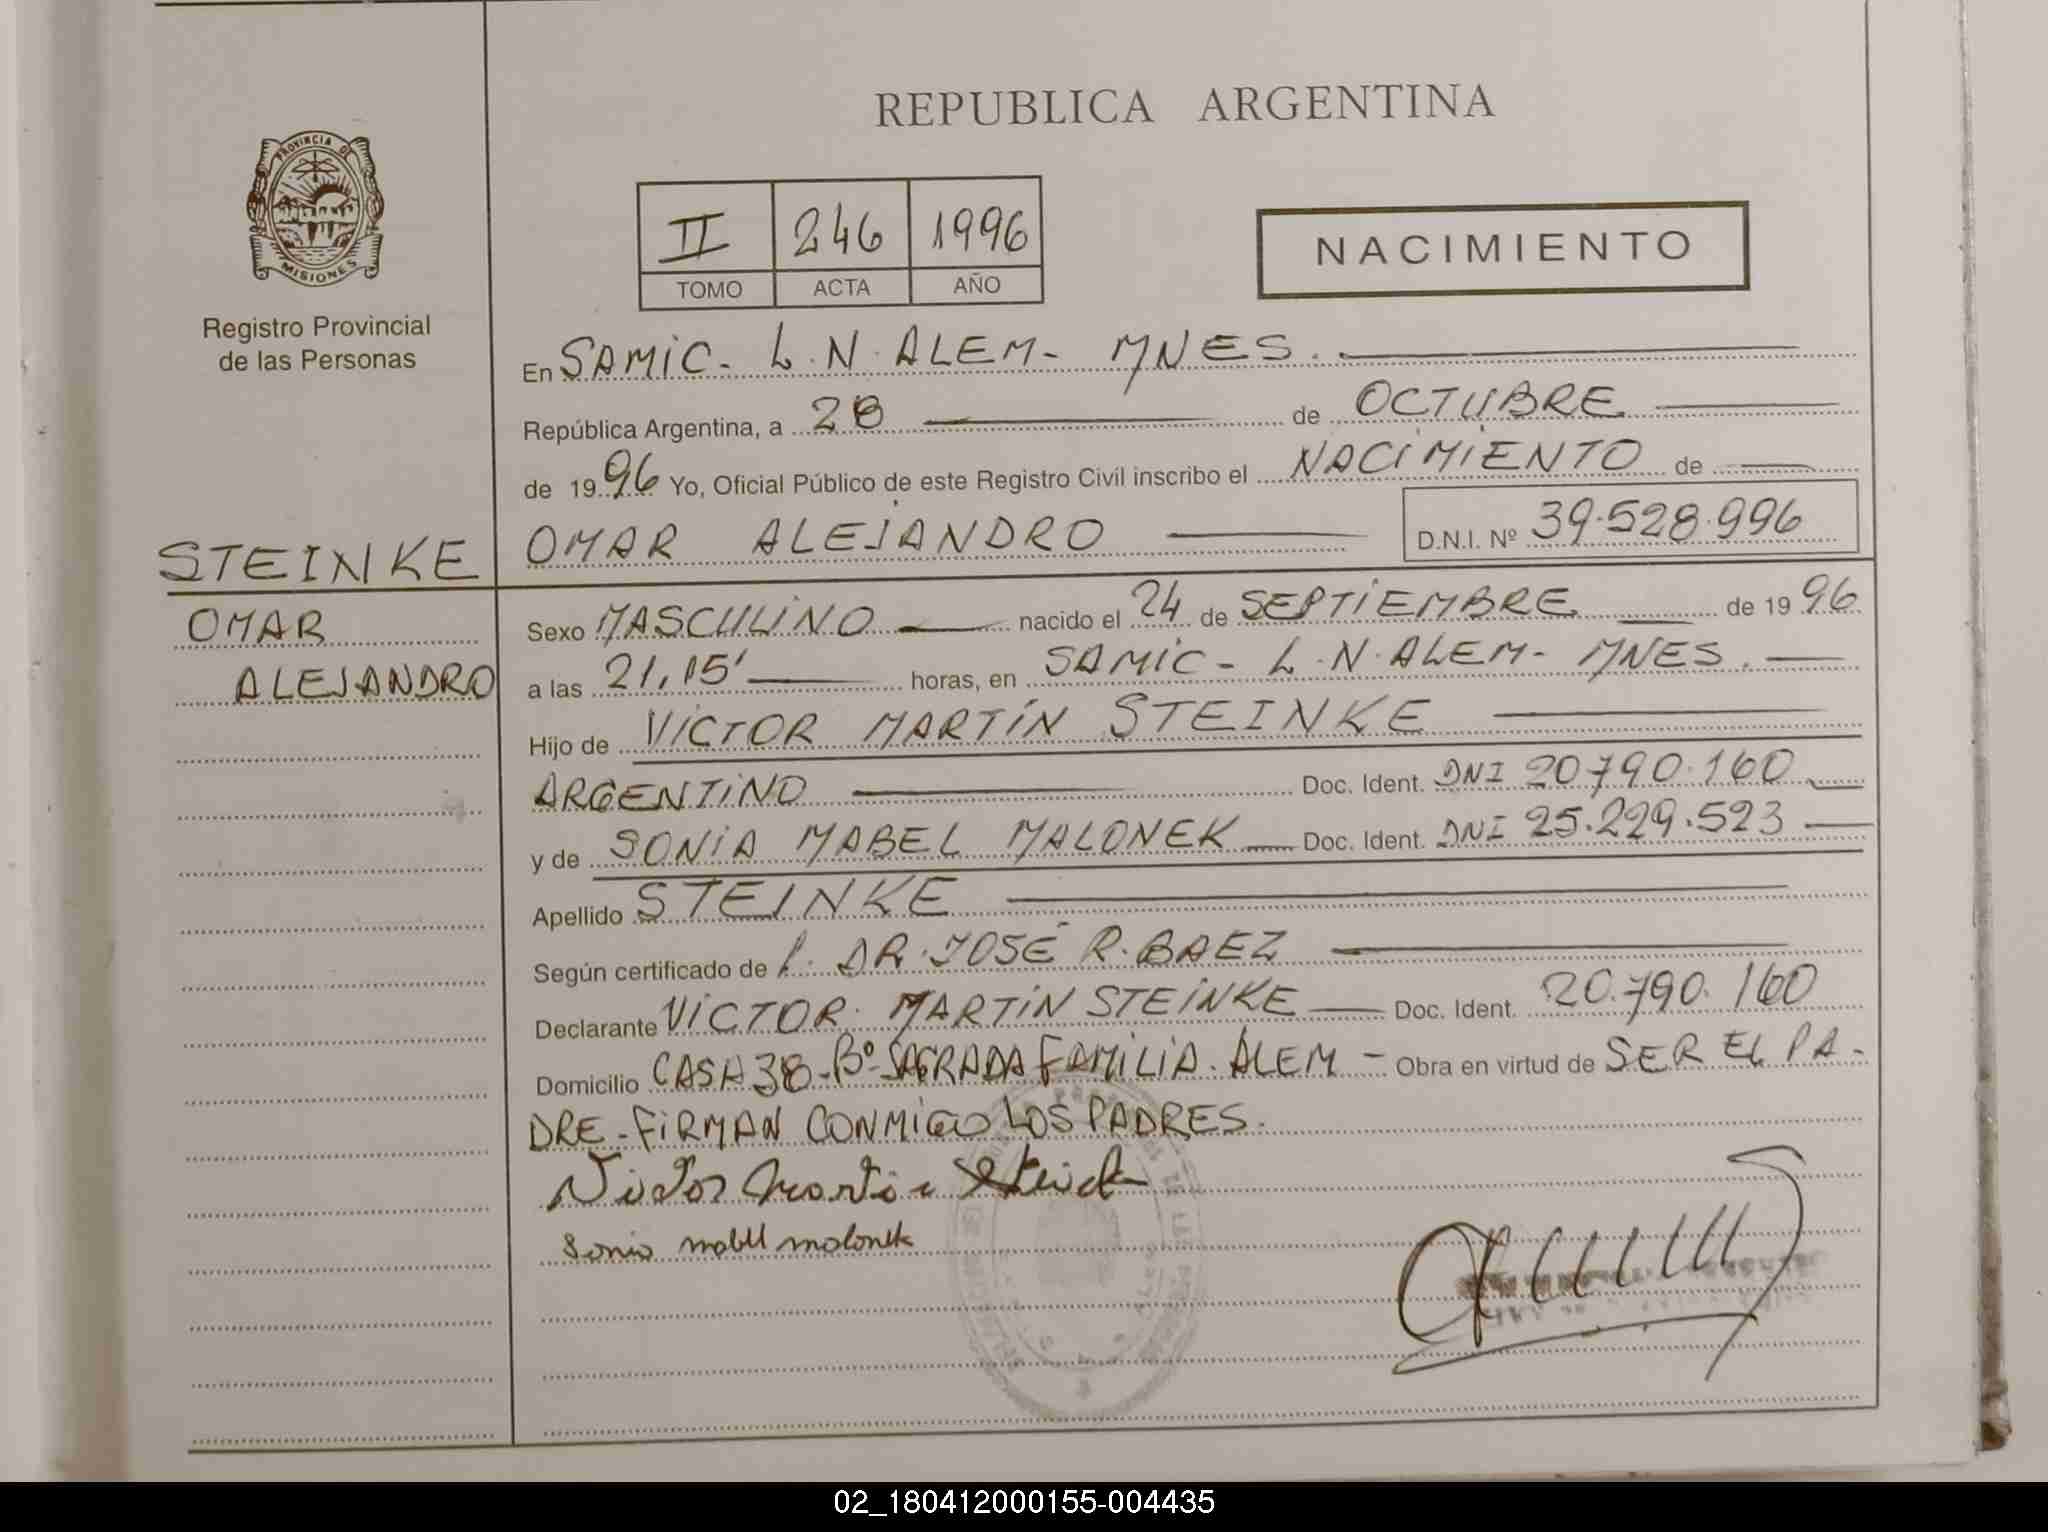 REPUBLICA ARGENTINA
PROVINCIA DE
MISIONES
Registro Provincial
de las Personas
II 246 1996
TOMO ACTA AÑO
NACIMIENTO
En SAMIC - L. N. ALEM - MNES.
República Argentina, a 28 de OCTUBRE
de 1996 Yo, Oficial Público de este Registro Civil inscribo el NACIMIENTO de
OMAR ALEJANDRO D.N.I. Nº 39.528.996
STEINKE
OMAR
ALEJANDRO
Sexo MASCULINO nacido el 24 de SEPTIEMBRE de 1996
a las 21,15' horas, en SAMIC - L. N. ALEM - MNES.
Hijo de VICTOR MARTÍN STEINKE
ARGENTINO Doc. Ident. DNI 20.790.160
y de SONIA MABEL MALONEK Doc. Ident. DNI 25.229.523
Apellido STEINKE
Según certificado de P. DR. JOSÉ R. BAEZ
Declarante VICTOR MARTÍN STEINKE Doc. Ident. 20.790.160
Domicilio CASA 38 - Bº SAGRADA FAMILIA. ALEM - Obra en virtud de SER EL PA-
DRE - FIRMAN CONMIGO LOS PADRES.
Sonia mabel malonek
02_180412000155-004435